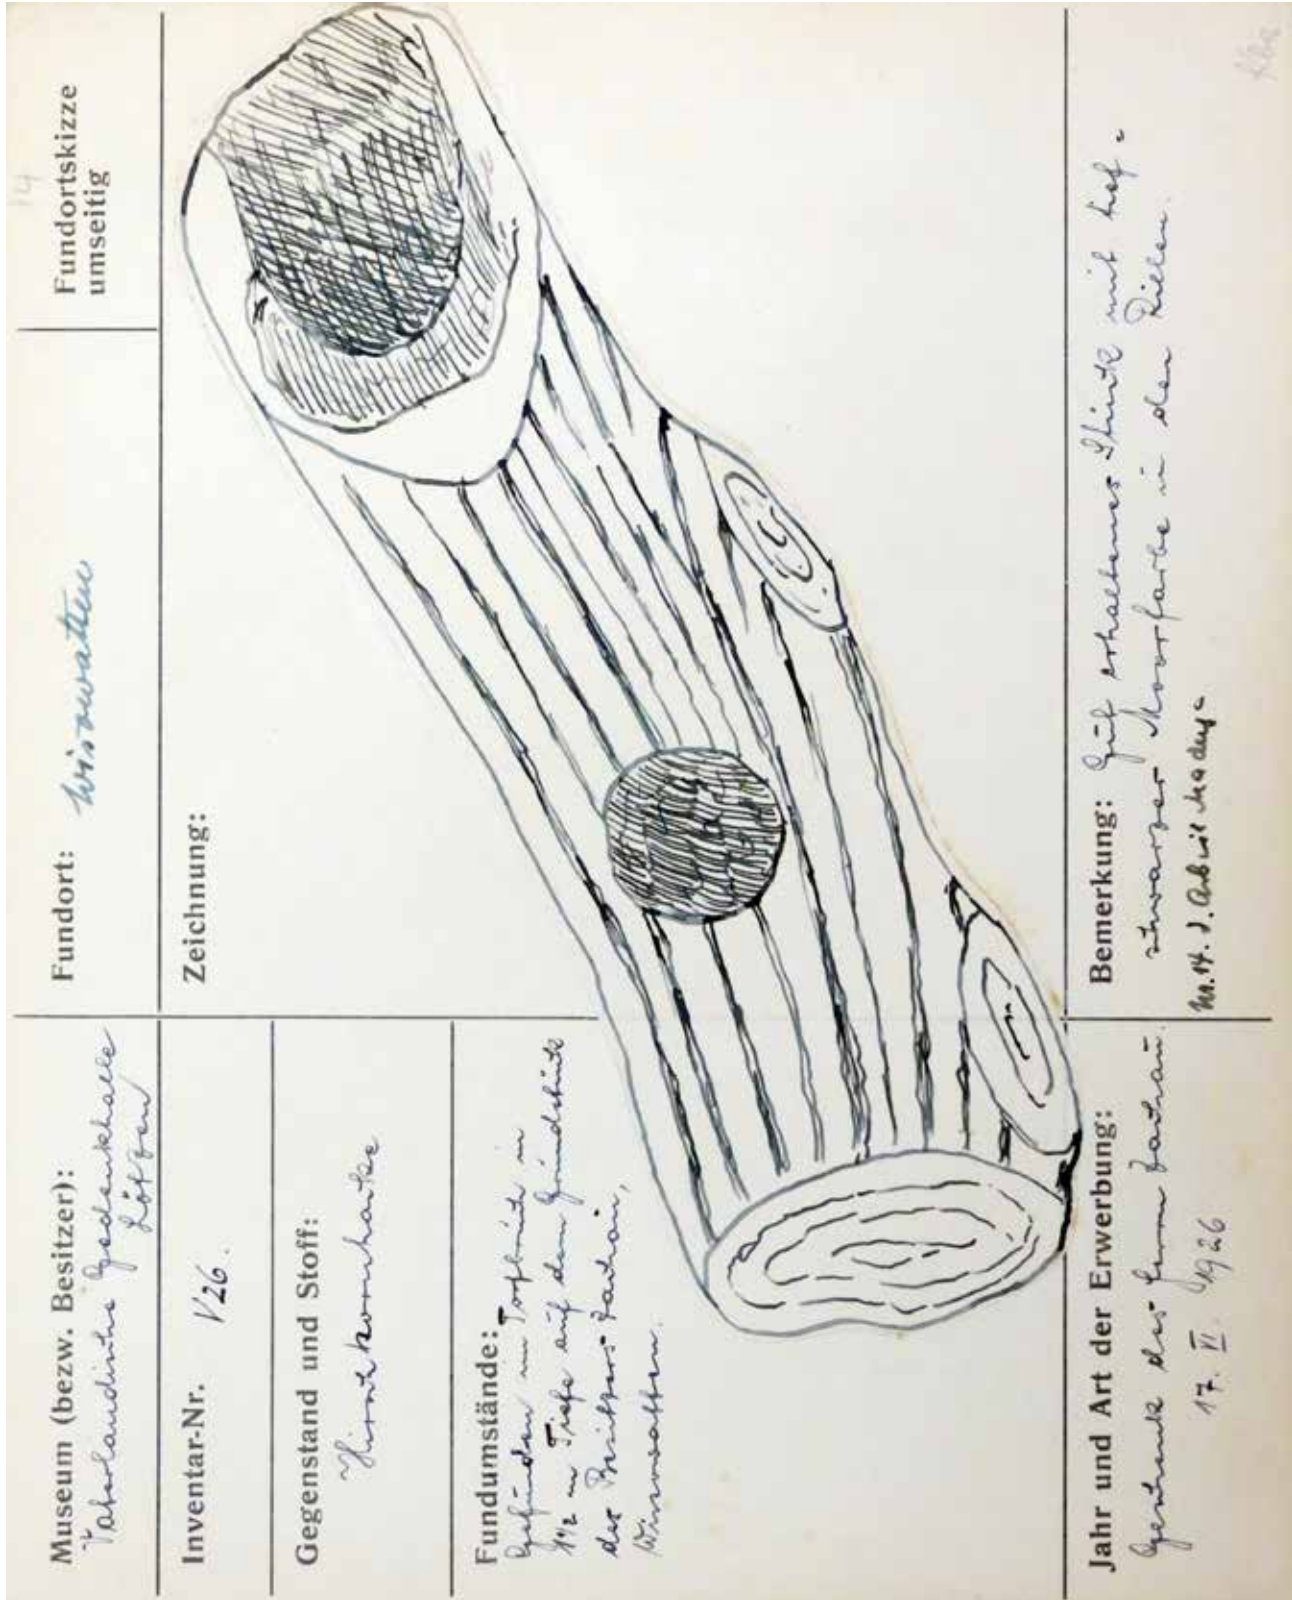 Museum (bezw. Besitzer):
Vaterländische Gedenkhalle
Lötzen
Fundort: Wissowatten
Fundortskizze
umseitig
14
Inventar-Nr. V26.
Gegenstand und Stoff:
Hirschhornhacke
Fundumstände:
Gefunden im Torfbruch in
1 1/2 m Tiefe auf dem Grundstück
des Besitzers
Wissowatten.
Zeichnung:
Jahr und Art der Erwerbung:
Geschenk des Herrn
17. VI. 1926
Bemerkung: Gut erhaltenes Stück mit tief-
schwarzer Moorfarbe in den Rillen.
Nr. 14. d. Arbeit